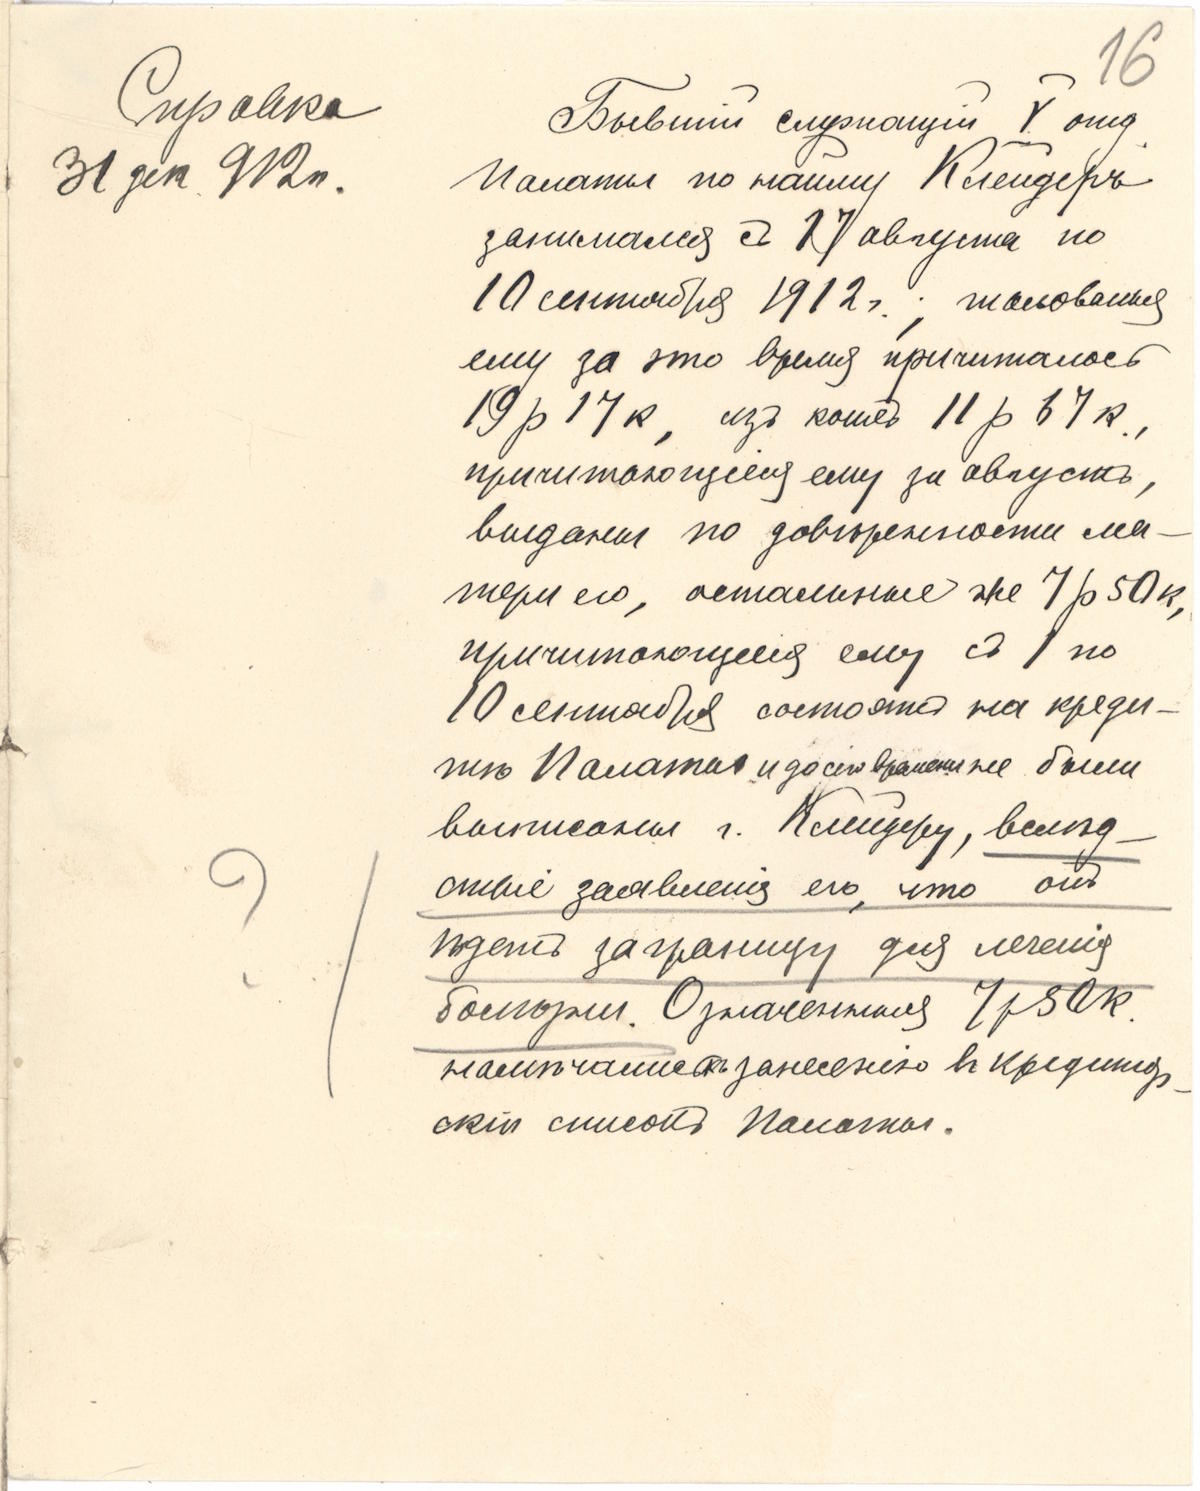 16
Справка
31 дек. 912 г.
Бывшій служащій V отд
Палаты по найму Клейдеръ
занимался съ 17 августа по
10 сентября 1912 г.; жалованья
ему за это время причиталось
19 р 17 к, изъ коихъ 11 р 67 к.,
причитающіеся ему за августъ,
выданы по довѣренности ма-
тери его, остальные же 7 р 50 к,
причитающіеся ему съ 1 по
10 сентября состоятъ на креди-
тѣ Палаты и до сего времени не были
выписаны г. Клейдеру, вслѣд-
ствіе заявленія его, что онъ
ѣдетъ заграницу для леченія
болѣзни. Означенныя 7 р 50 к.
занесенію въ кредитор-
скій списокъ Палаты.
?